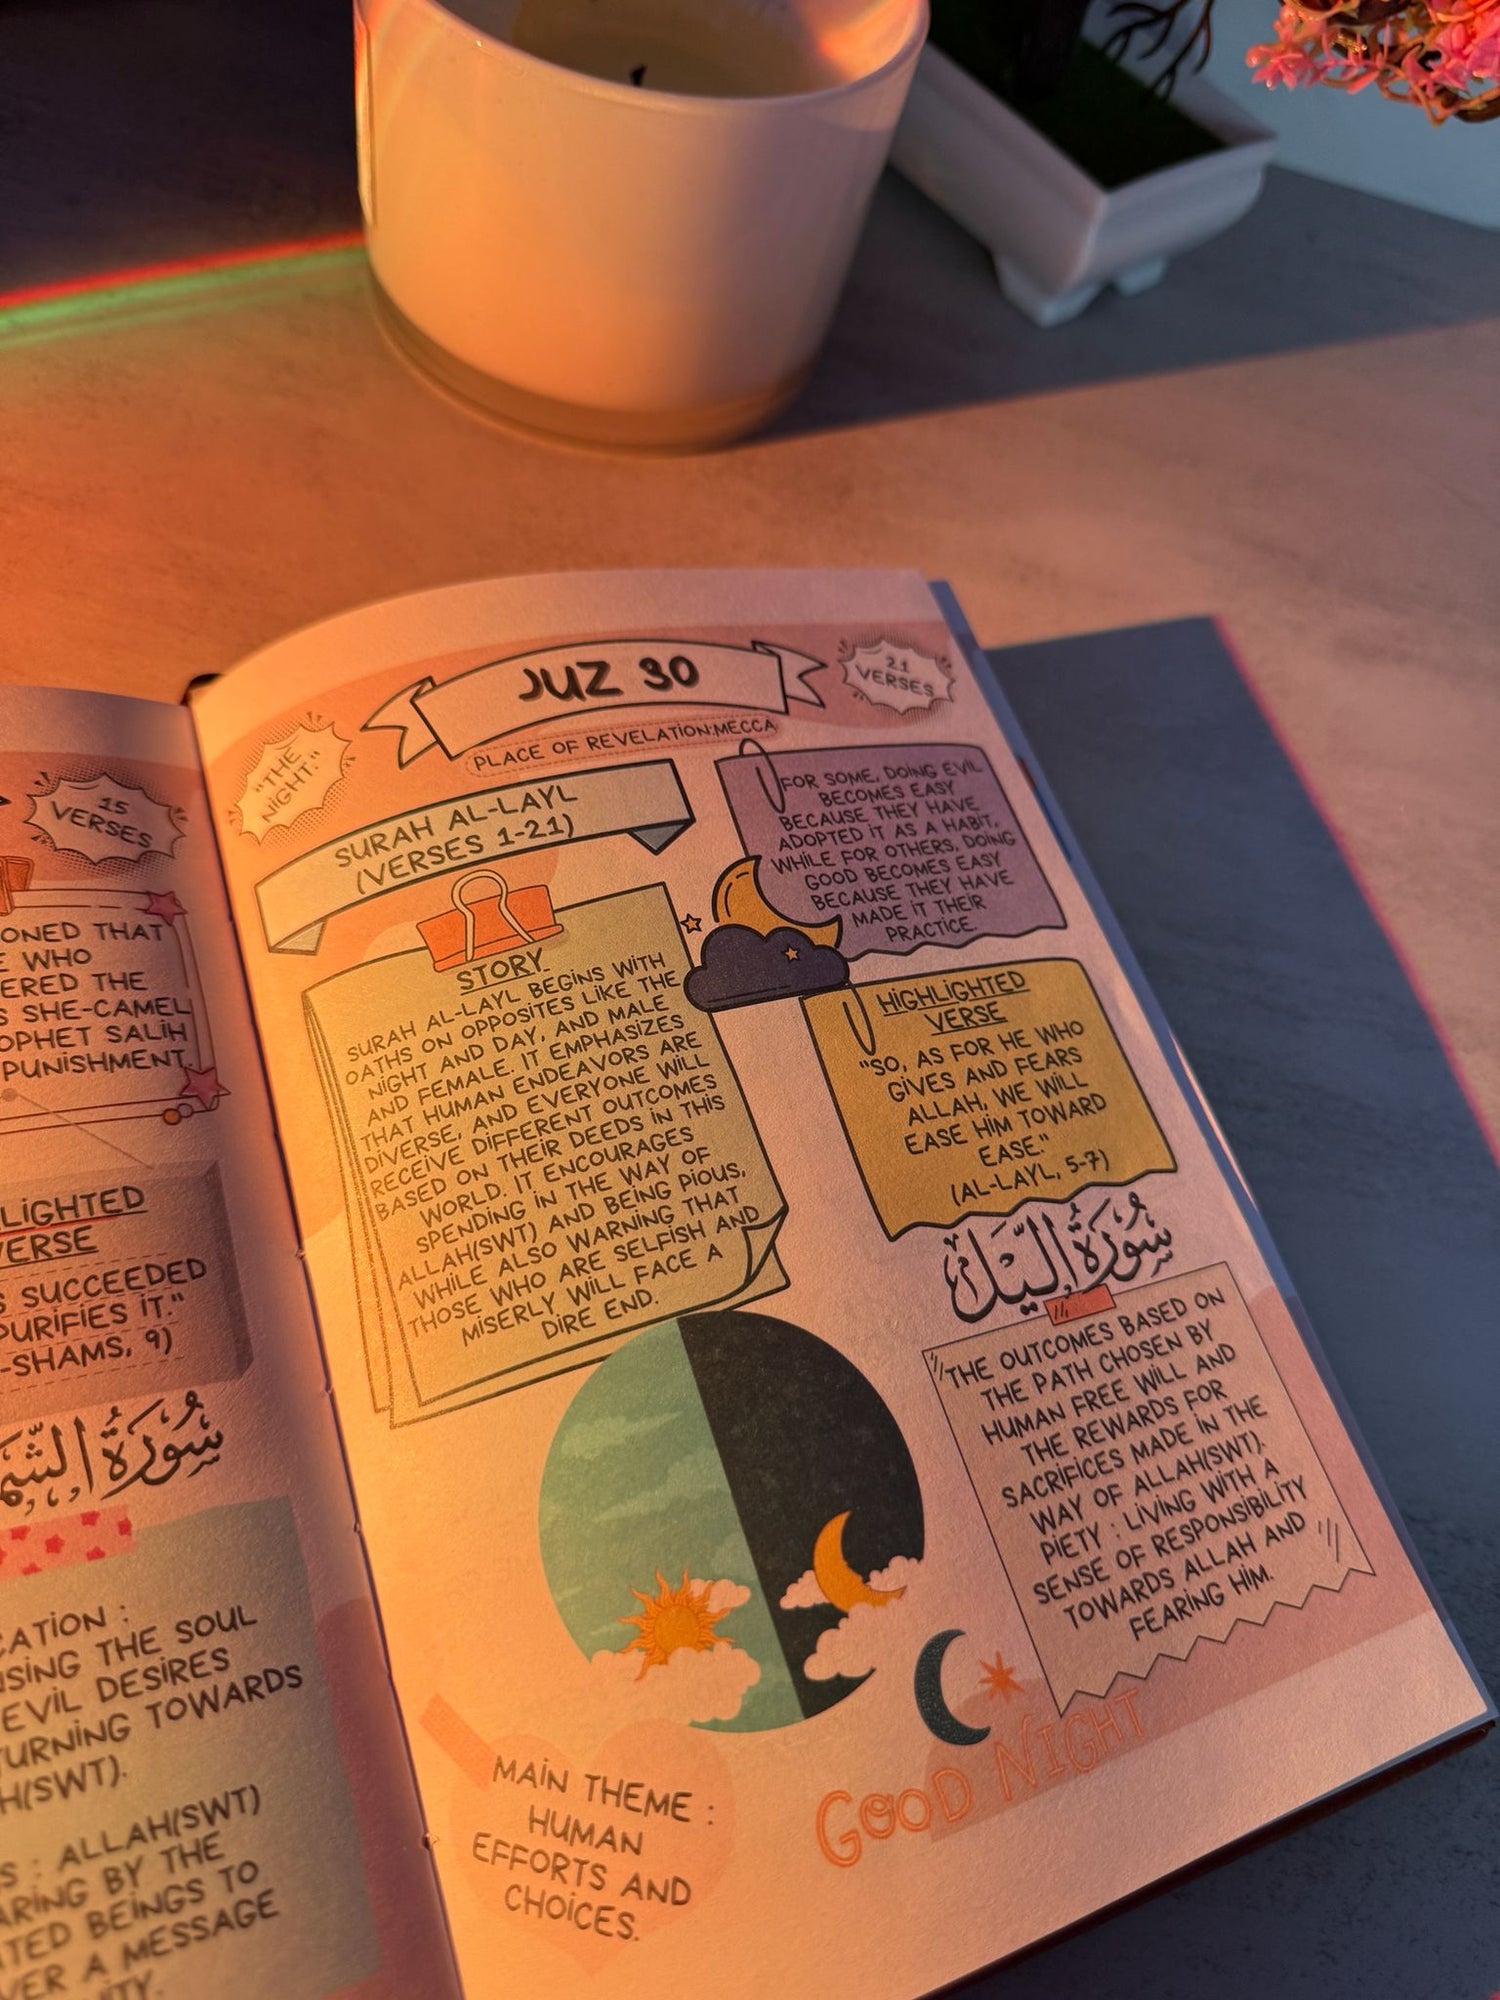 15
VERSES
ONED THAT
WHO
ERED THE
SHE-CAMEL
OPHET SALIH
PUNISHMENT.
LIGHTED
VERSE
SUCCEEDED
PURIFIES IT."
-SHAMS, 9)
CATION :
SING THE SOUL
EVIL DESIRES
TURNING TOWARDS
H(SWT).
S : ALLAH(SWT)
ARING BY THE
TED BEINGS TO
VER A MESSAGE
"THE
NIGHT."
JUZ 30
21
VERSES
PLACE OF REVELATION:MECCA
SURAH AL-LAYL
(VERSES 1-21)
STORY
SURAH AL-LAYL BEGINS WITH
OATHS ON OPPOSITES LIKE THE
NIGHT AND DAY, AND MALE
AND FEMALE. IT EMPHASIZES
THAT HUMAN ENDEAVORS ARE
DIVERSE, AND EVERYONE WILL
RECEIVE DIFFERENT OUTCOMES
BASED ON THEIR DEEDS IN THIS
WORLD. IT ENCOURAGES
SPENDING IN THE WAY OF
ALLAH(SWT) AND BEING PIOUS,
WHILE ALSO WARNING THAT
THOSE WHO ARE SELFISH AND
MISERLY WILL FACE A
DIRE END.
FOR SOME, DOING EVIL
BECOMES EASY
BECAUSE THEY HAVE
ADOPTED IT AS A HABIT,
WHILE FOR OTHERS, DOING
GOOD BECOMES EASY
BECAUSE THEY HAVE
MADE IT THEIR
PRACTICE.
HIGHLIGHTED
VERSE
"SO, AS FOR HE WHO
GIVES AND FEARS
ALLAH, WE WILL
EASE HIM TOWARD
EASE."
(AL-LAYL, 5-7)
سُورَةُ الَّيْل
THE OUTCOMES BASED ON
THE PATH CHOSEN BY
HUMAN FREE WILL AND
THE REWARDS FOR
SACRIFICES MADE IN THE
WAY OF ALLAH(SWT).
PIETY : LIVING WITH A
SENSE OF RESPONSIBILITY
TOWARDS ALLAH AND
FEARING HIM.
GOOD NIGHT
MAIN THEME :
HUMAN
EFFORTS AND
CHOICES.